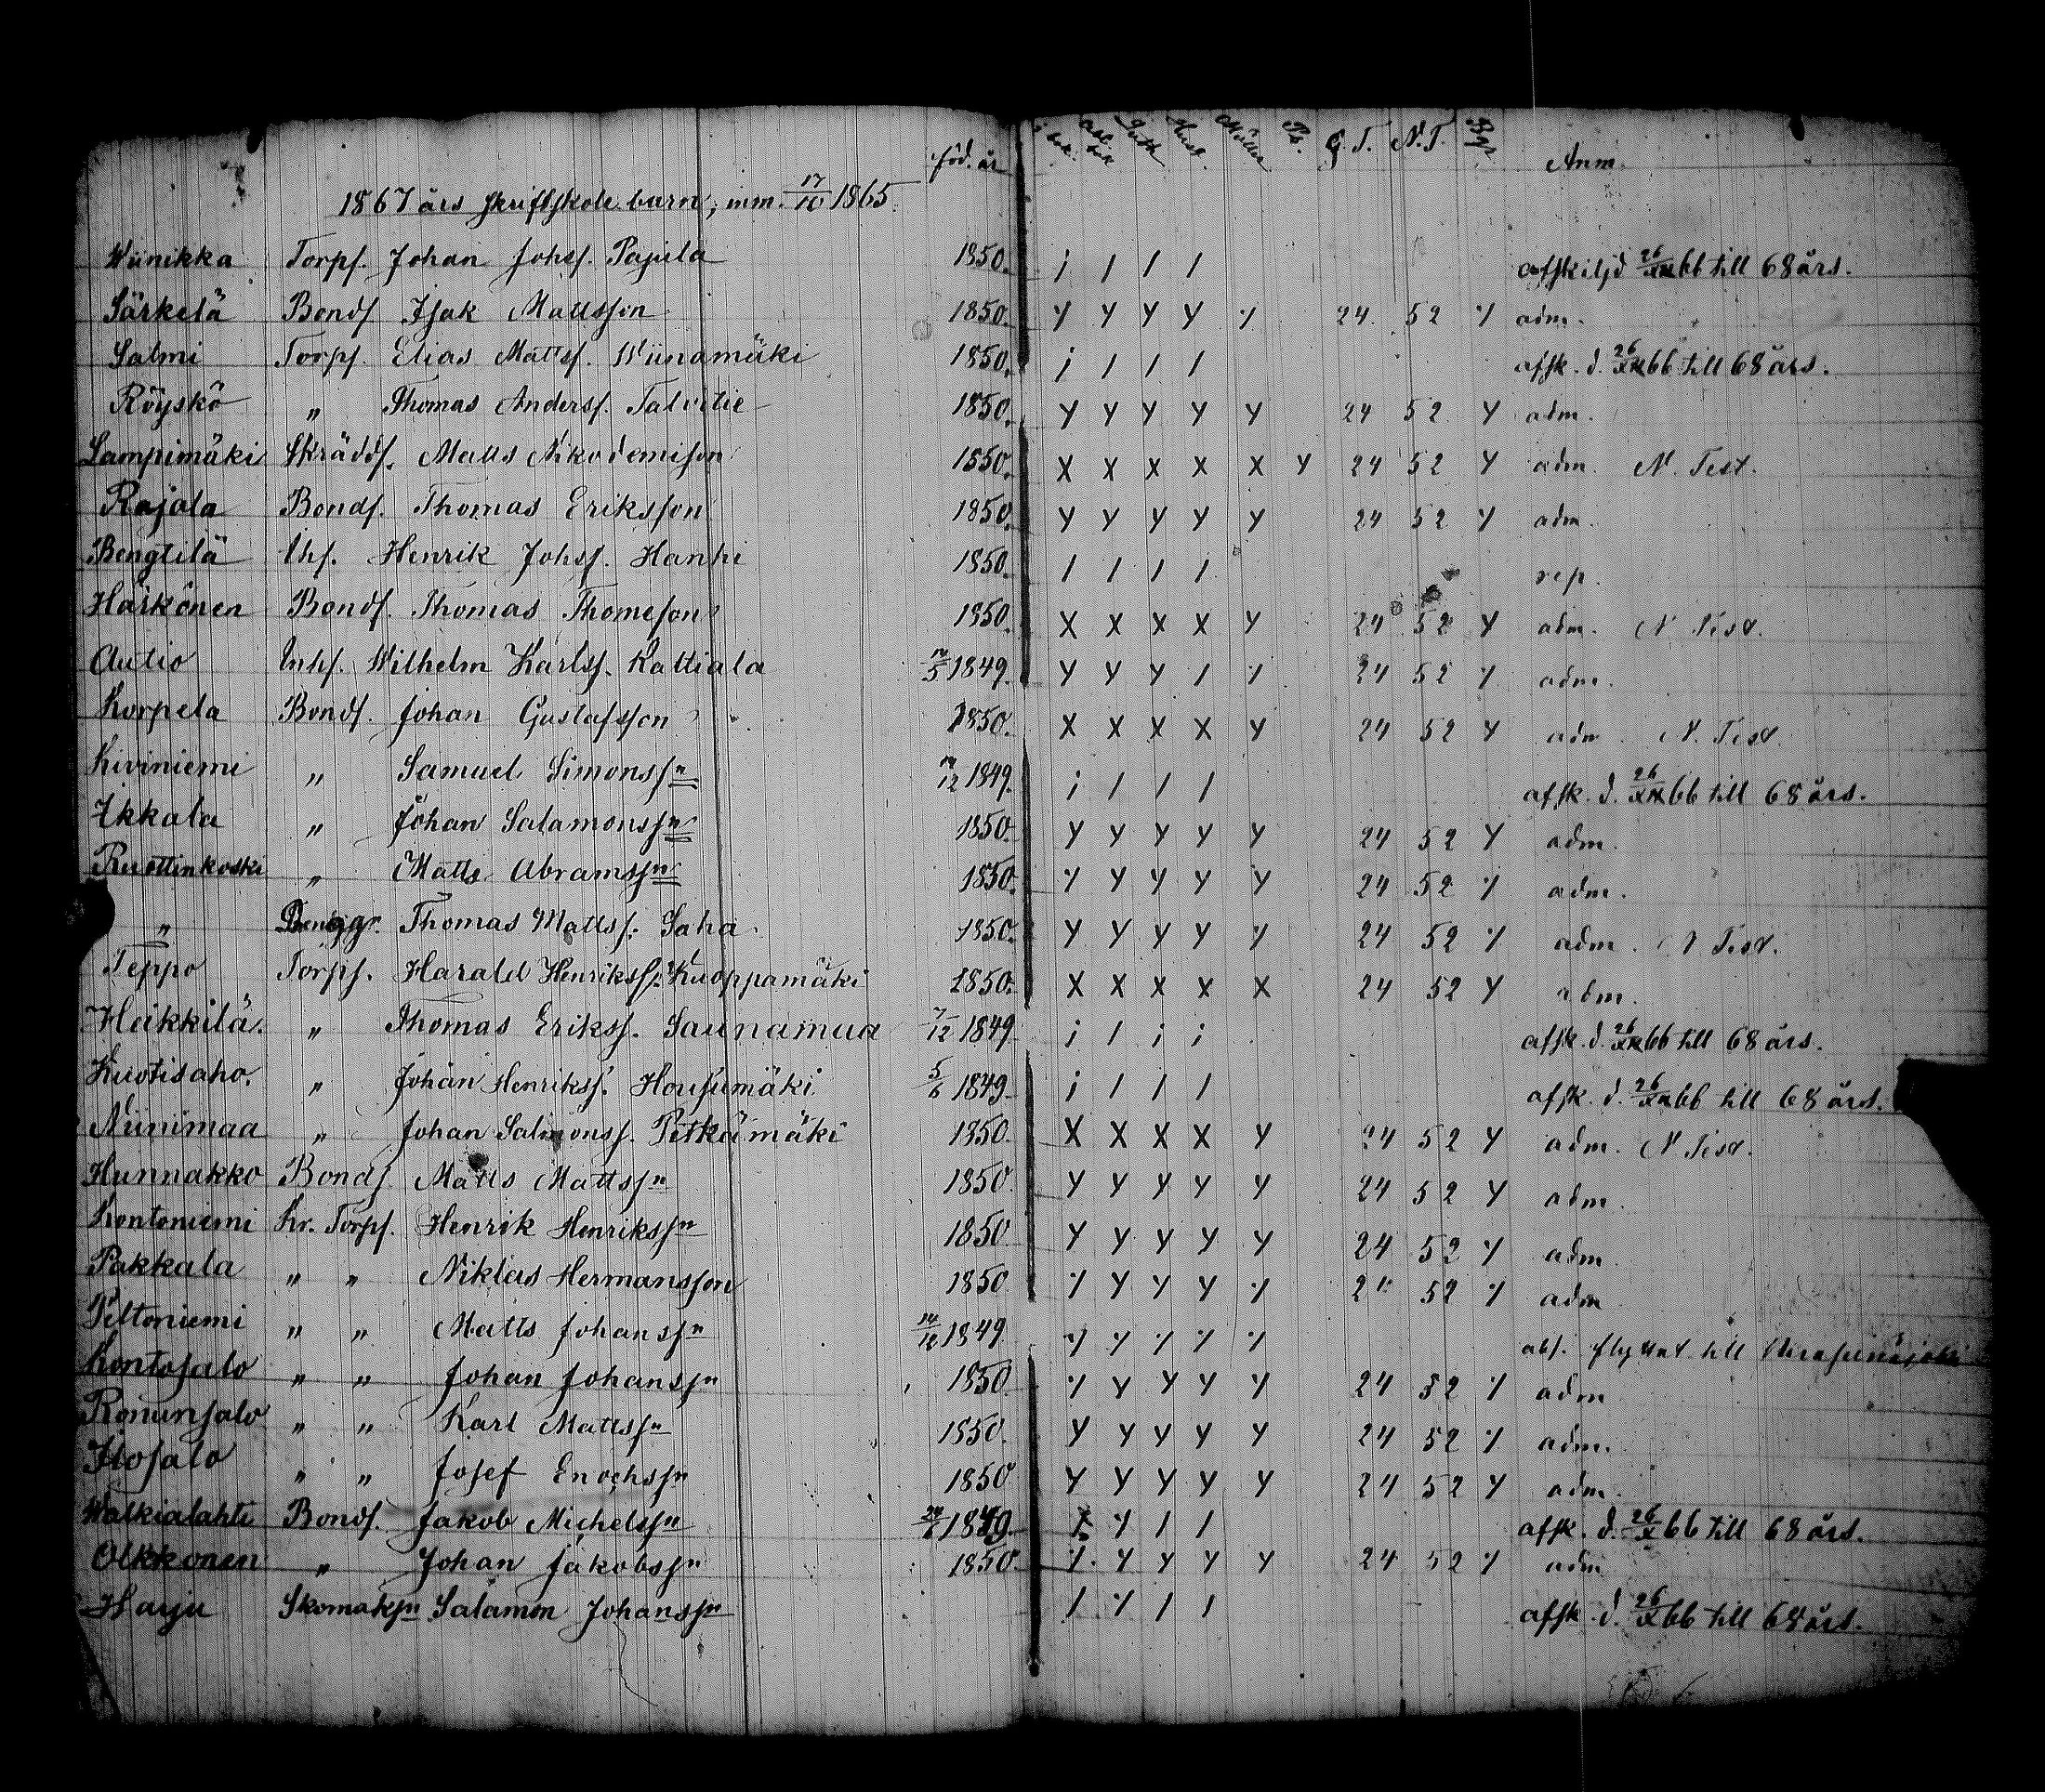 föd. år i bok. utl. bok Luth. Hust. Müller Ps. G. T. N. T. Anm.
1867 års skriftskole barn, inm. 17/10 1865.
Wiinikka Torps. Johan Johss. Pajula 1850. i / / / afskiljd 26/X 66 till 68 års.
Särkelä Bonds Isak Mattsson 1850. Y Y Y Y Y 24 52 Y adm.
Salmi Torps. Elias Mattss. Wiinamäki 1850. i / / / afsk. d. 26/X 66 till 68 års.
Röyskö " Thomas Anderss. Talvitie 1850. Y Y Y Y Y 24 52 Y adm.
Lampimäki Skrädds. Matts Nikodemison 1850. X X X X X Y 24 52 Y adm. N. Test.
Rajala Bonds. Thomas Eriksson 1850. Y Y Y Y Y 24 52 Y adm.
Bengtilä Ihs. Henrik Johss. Hanhi 1850. / / / / rep.
Harkönen Bonds. Thomas Thomeson 1850. X X X X Y 24 52 Y adm. N Test.
Autio Inhs. Wilhelm Karlss. Kattiala /5 1849. Y Y Y / Y 24 52 Y adm.
Korpela Bonds. Johan Gustafsson 1850. X X X X Y 24 52 Y adm. N. Test.
Kiviniemi " Samuel Simonssn /12 1849. i / / / afsk. d. 26/X 66 till 68 års.
Ikkala " Johan Salamonssn 1850 Y Y Y Y Y 24 52 Y adm.
Ruottinkoski " Matts Abramssn 1850. Y Y Y Y Y 24 52 Y adm.
" Thomas Mattss. Saha 1850. Y Y Y Y Y 24 52 Y adm. N Test.
Teppo Torps. Harald Henrikss. Kuoppamäki 1850. X X X X X 24 52 Y adm.
Heikkilä. " Thomas Erikss. Saunamua 7/12 1849 i / i i afsk. d. 26/X 66 till 68 års.
Kuotisaho. " Johan Henrikss. Housumäki 5/6 1849 i / / / afsk. d. 26/X 66 till 68 års.
Niinimaa " Johan Salmonss. Pitkämäki 1850. X X X X Y 24 52 Y adm. N Test.
Hunnakko Bonds Matts Mattssn 1850. Y Y Y Y Y 24 52 Y adm.
Kontoniemi Kr. Torps. Henrik Henrikssn 1850 Y Y Y Y Y 24 52 Y adm
Pakkala " " Niklas Hermansson 1850 Y Y Y Y Y 24 52 Y adm
Peltoniemi " " Matts Johanssn 14/12 1849 Y Y Y Y Y abs. flyttat till
Kontosalo " " Johan Johanssn 1850 Y Y Y Y Y 24 52 Y adm
Ronunsalo " " Karl Mattssn 1850. Y Y Y Y Y 24 52 Y adm.
Ilosalo " " Josef Enochssn 1850 Y Y Y Y Y 24 52 Y adm.
Walkialahti Bonds. Jakob Michelssn 1849 Y / / afsk. d. 26/X 66 till 68 års.
Olkkonen " Johan Jakobssn 1850. Y Y Y Y Y 24 52 Y adm
Harju Skomaksn Salamon Johanssn / Y / / afsk. d. 26/X 66 till 68 års.